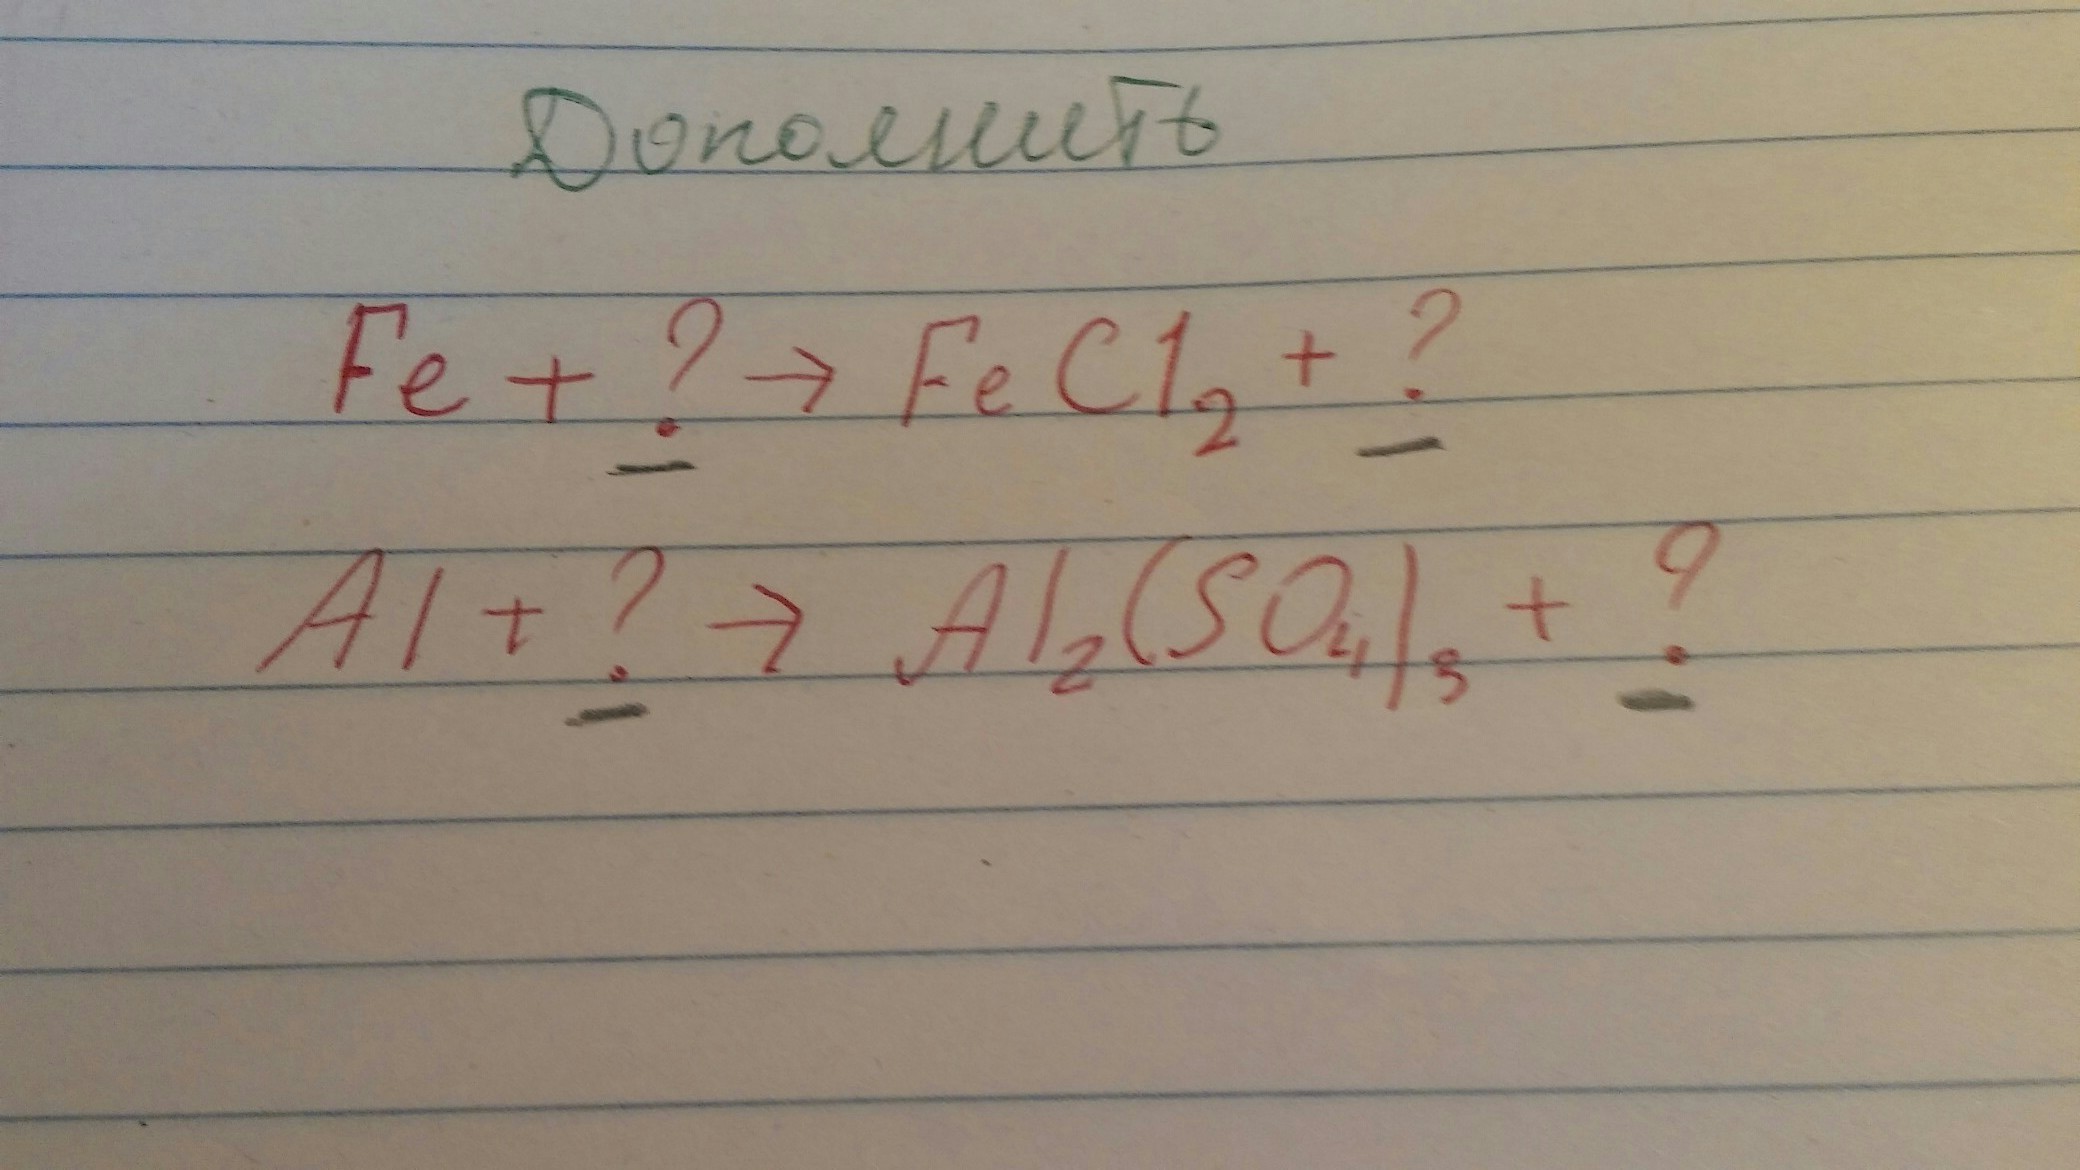 Дополнить
Fe + ? → FeCl₂ + ?
Al + ? → Al₂(SO₄)₃ + ?